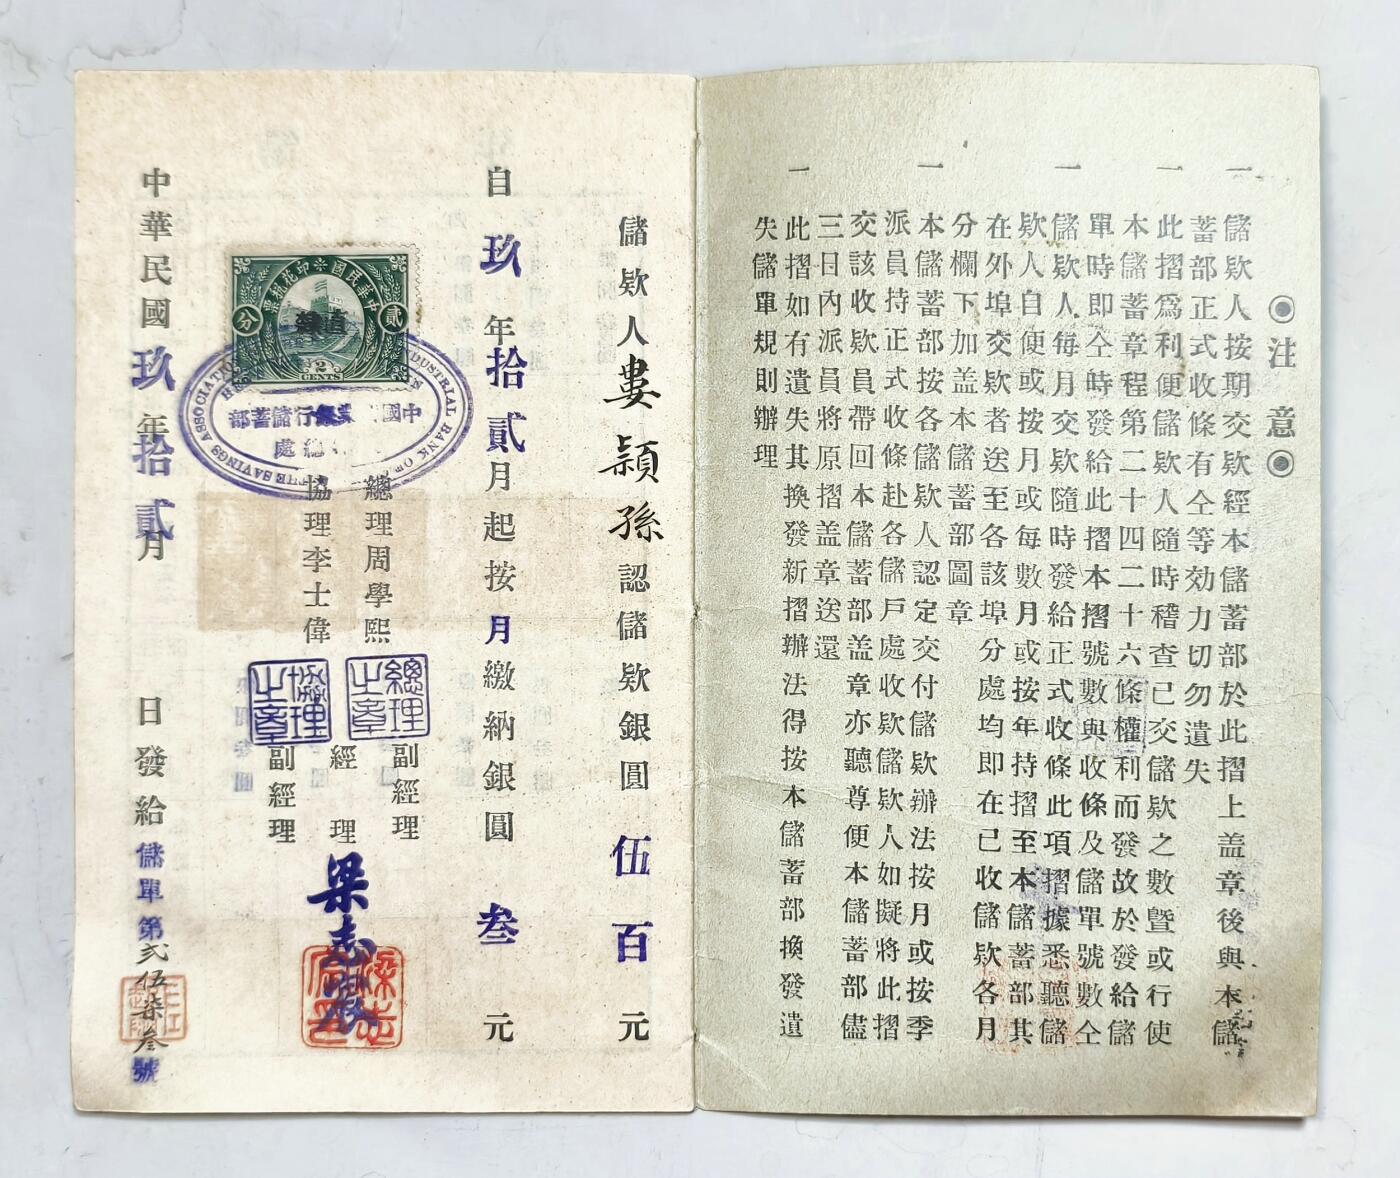 ◉注意◉
一 儲欵人按期交欵經本儲蓄部於此摺上盖章後與本儲
蓄部正式收條有仝等効力切勿遺失
一 此摺爲利便儲欵人隨時稽查已交儲欵之數曁或行使
本儲蓄章程第二十四二十六條權利而發故於發給儲
單時即仝時發給此摺本摺號數與收條及儲單號數仝
一 儲欵人每月交欵隨時發給正式收條此項摺據悉聽儲
欵人自便或按月或每數月或按年持摺至本儲蓄部其
在外埠交欵者送至各該埠分處均即在已收儲欵各月
分欄下加盖本儲蓄部圖章
一 本儲蓄部按各儲欵人認定交付儲欵辦法按月或按季
派員持正式收條赴各儲戶處收欵儲欵人如擬將此摺
交該收欵員帶回本儲蓄部盖章亦聽尊便本儲蓄部儘
三日內派員將原摺盖章送還
一 此摺如有遺失其換發新摺辦法得按本儲蓄部換發遺
失儲單規則辦理
儲欵人婁頴孫認儲欵銀圓伍百元
自玖年拾貳月起按月繳納銀圓叁元
中華民國印花稅票
貳分
直隸
2
CENTS
THE SAVINGS ASSOCIATION
INDUSTRIAL BANK OF
中國 業銀行儲蓄部
總處
總理周學熙
協理李士偉
總理之章
協理之章
副經理
經理
副經理
梁志
中華民國玖年拾貳月 日發給儲單第弍伍柒叁號